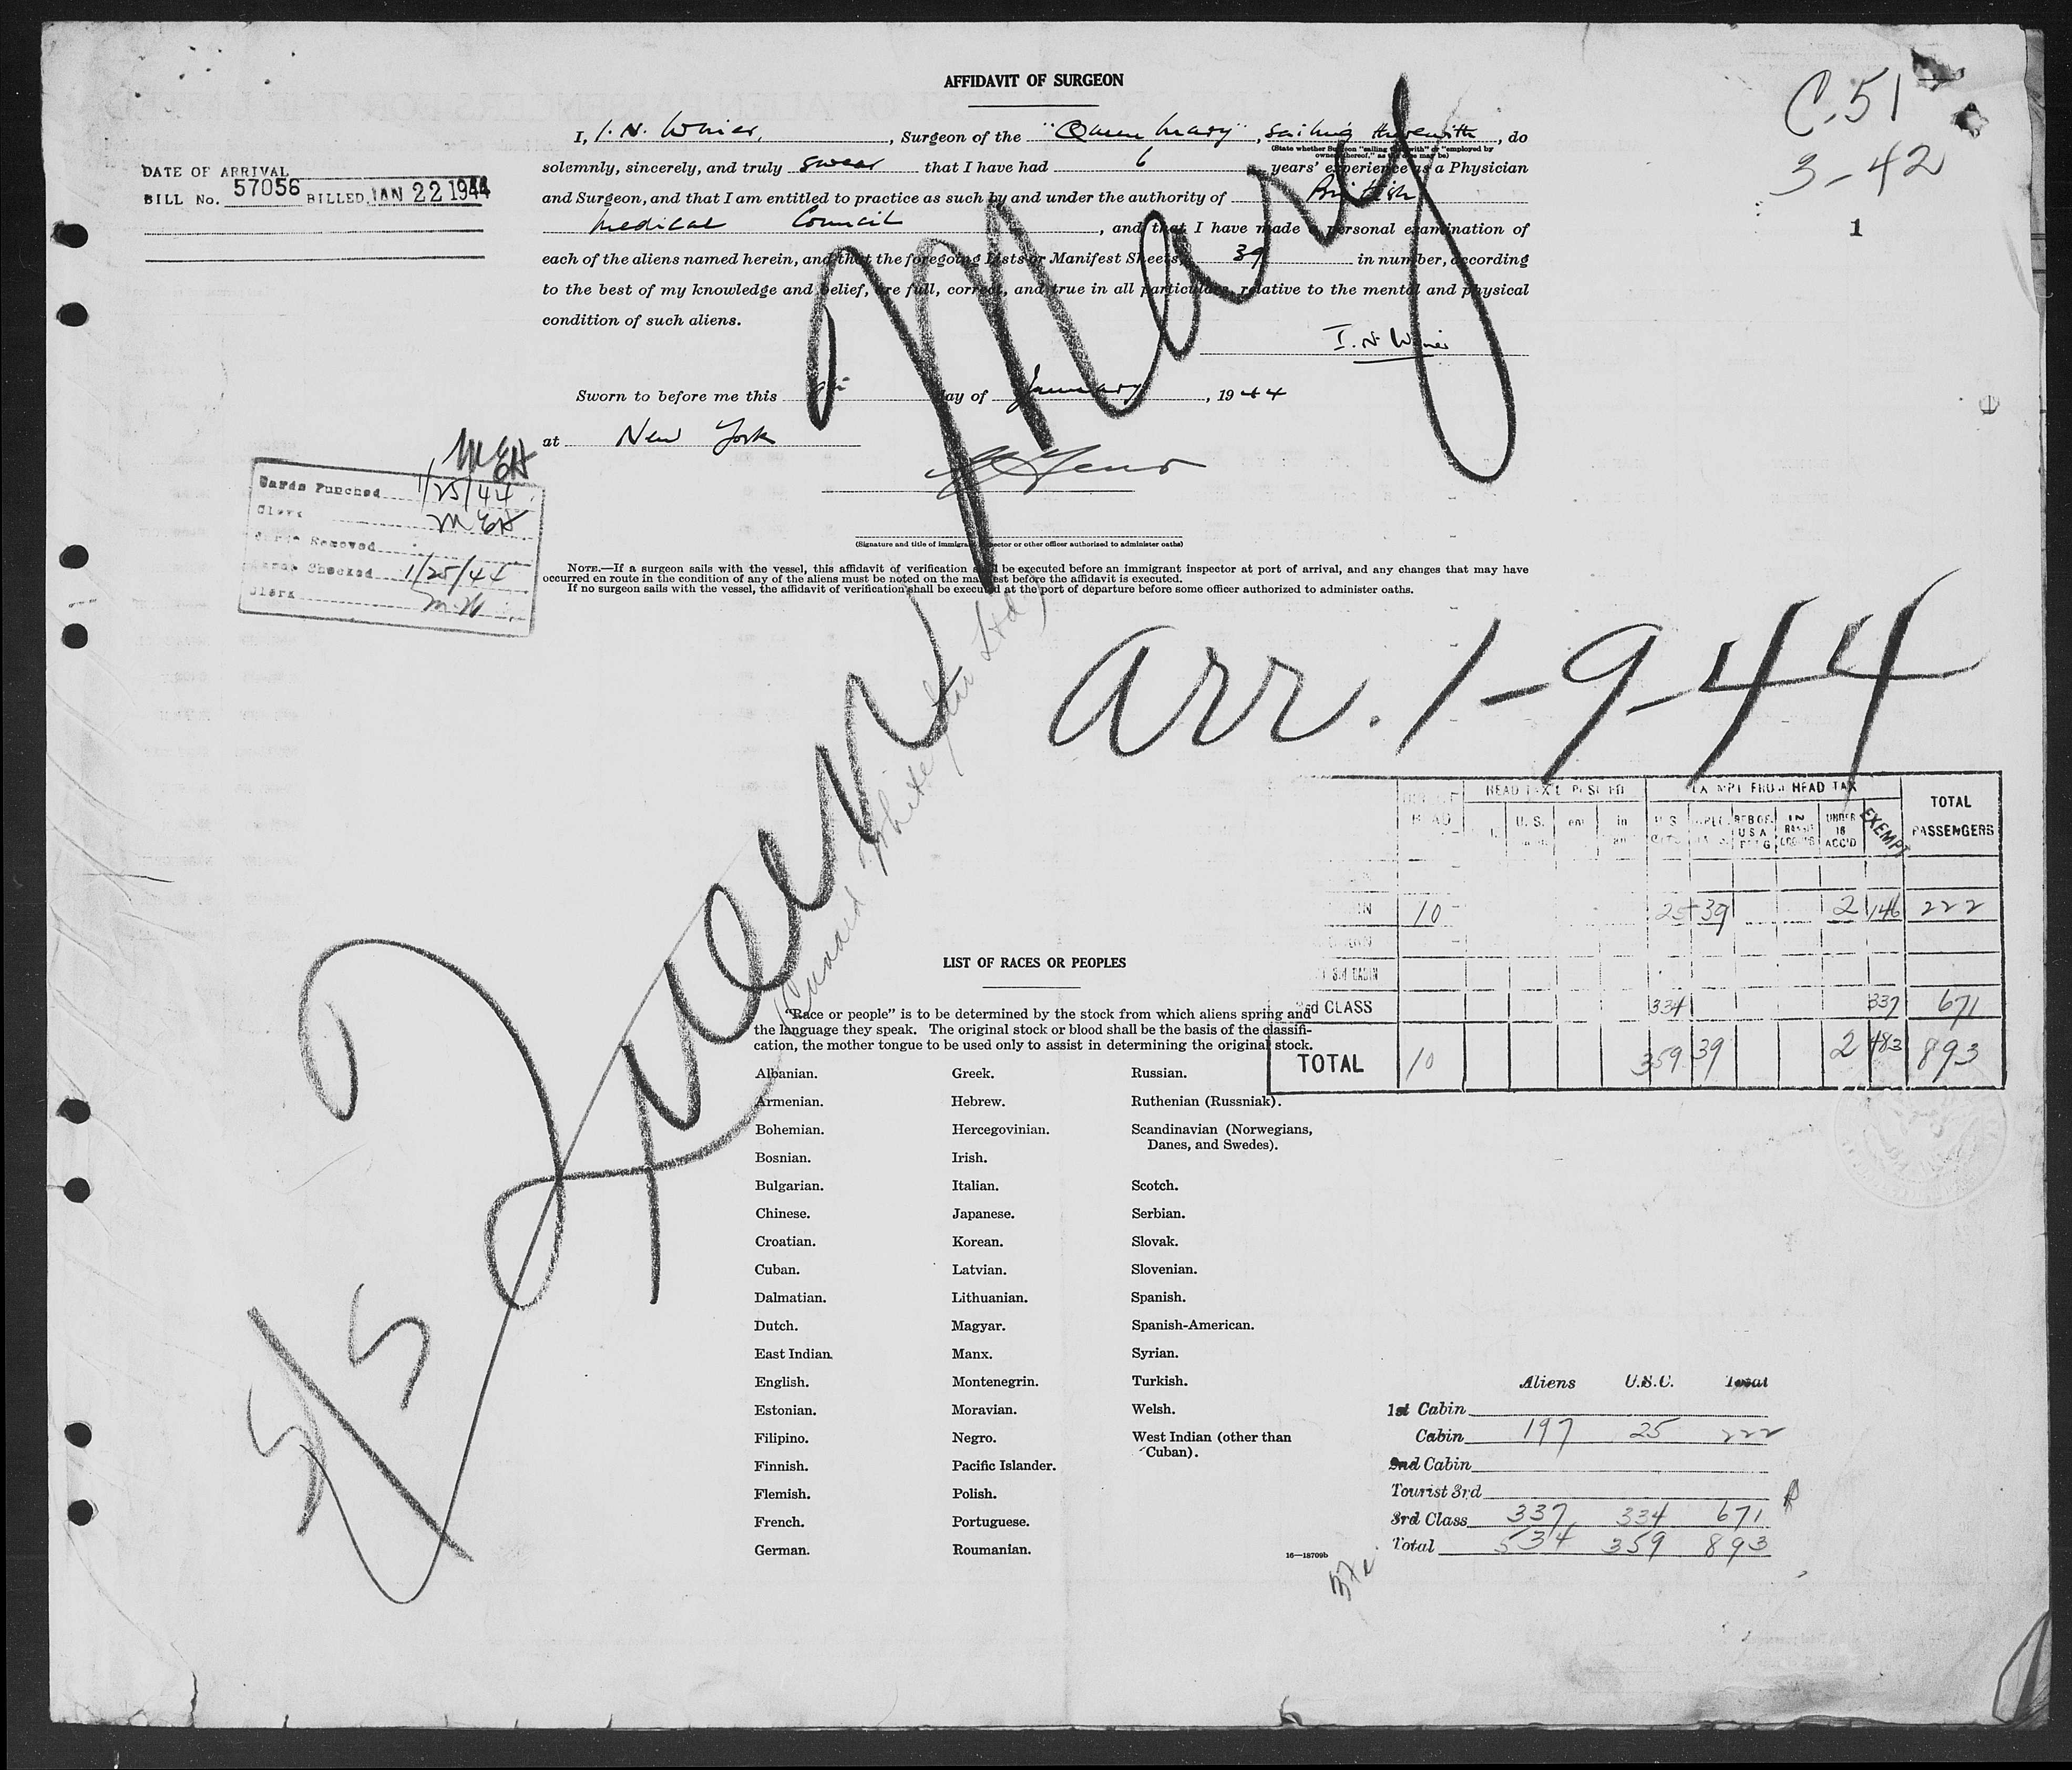 AFFIDAVIT OF SURGEON
C.51
3-42
1
I, I. N. Winer, Surgeon of the "Queen Mary", sailing therewith, do
(State whether Surgeon "sailing therewith" or "employed by
owners thereof," as the case may be)
solemnly, sincerely, and truly swear that I have had 6 years' experience as a Physician
and Surgeon, and that I am entitled to practice as such by and under the authority of British
Medical Council, and that I have made a personal examination of
each of the aliens named herein, and that the foregoing Lists or Manifest Sheets, 39 in number, according
to the best of my knowledge and belief, are full, correct, and true in all particulars, relative to the mental and physical
condition of such aliens.
I. N. Winer
DATE OF ARRIVAL
BILL No. 57056 BILLED JAN 22 1944
Sworn to before me this day of January, 1944
at New York
(Signature and title of immigrant inspector or other officer authorized to administer oaths)
NOTE.—If a surgeon sails with the vessel, this affidavit of verification shall be executed before an immigrant inspector at port of arrival, and any changes that may have
occurred en route in the condition of any of the aliens must be noted on the manifest before the affidavit is executed.
If no surgeon sails with the vessel, the affidavit of verification shall be executed at the port of departure before some officer authorized to administer oaths.
MEH
Cards Punched 1/25/44
Clerk MEH
Cards Removed
Cards Checked 1/25/44
Clerk
S/S Queen Mary
Cunard White Star Ltd
arr. 1-9-44
EXEMPT FROM HEAD TAX
TOTAL
PASSENGERS
HEAD
U. S.
in
U.S.
U S A
IN
UNDER
16
ACC'D
EXEMPT
10 25 39 2 146 222
3rd CLASS 334 337 671
TOTAL 10 359 39 2 483 893
LIST OF RACES OR PEOPLES
"Race or people" is to be determined by the stock from which aliens spring and
the language they speak. The original stock or blood shall be the basis of the classifi-
cation, the mother tongue to be used only to assist in determining the original stock.
Albanian.
Armenian.
Bohemian.
Bosnian.
Bulgarian.
Chinese.
Croatian.
Cuban.
Dalmatian.
Dutch.
East Indian.
English.
Estonian.
Filipino.
Finnish.
Flemish.
French.
German.
Greek.
Hebrew.
Hercegovinian.
Irish.
Italian.
Japanese.
Korean.
Latvian.
Lithuanian.
Magyar.
Manx.
Montenegrin.
Moravian.
Negro.
Pacific Islander.
Polish.
Portuguese.
Roumanian.
Russian.
Ruthenian (Russniak).
Scandinavian (Norwegians,
Danes, and Swedes).
Scotch.
Serbian.
Slovak.
Slovenian.
Spanish.
Spanish-American.
Syrian.
Turkish.
Welsh.
West Indian (other than
Cuban).
16—18709b
Aliens U.S.C. Total
1st Cabin
Cabin 197 25 222
2nd Cabin
Tourist 3rd
3rd Class 337 334 671
Total 534 359 893